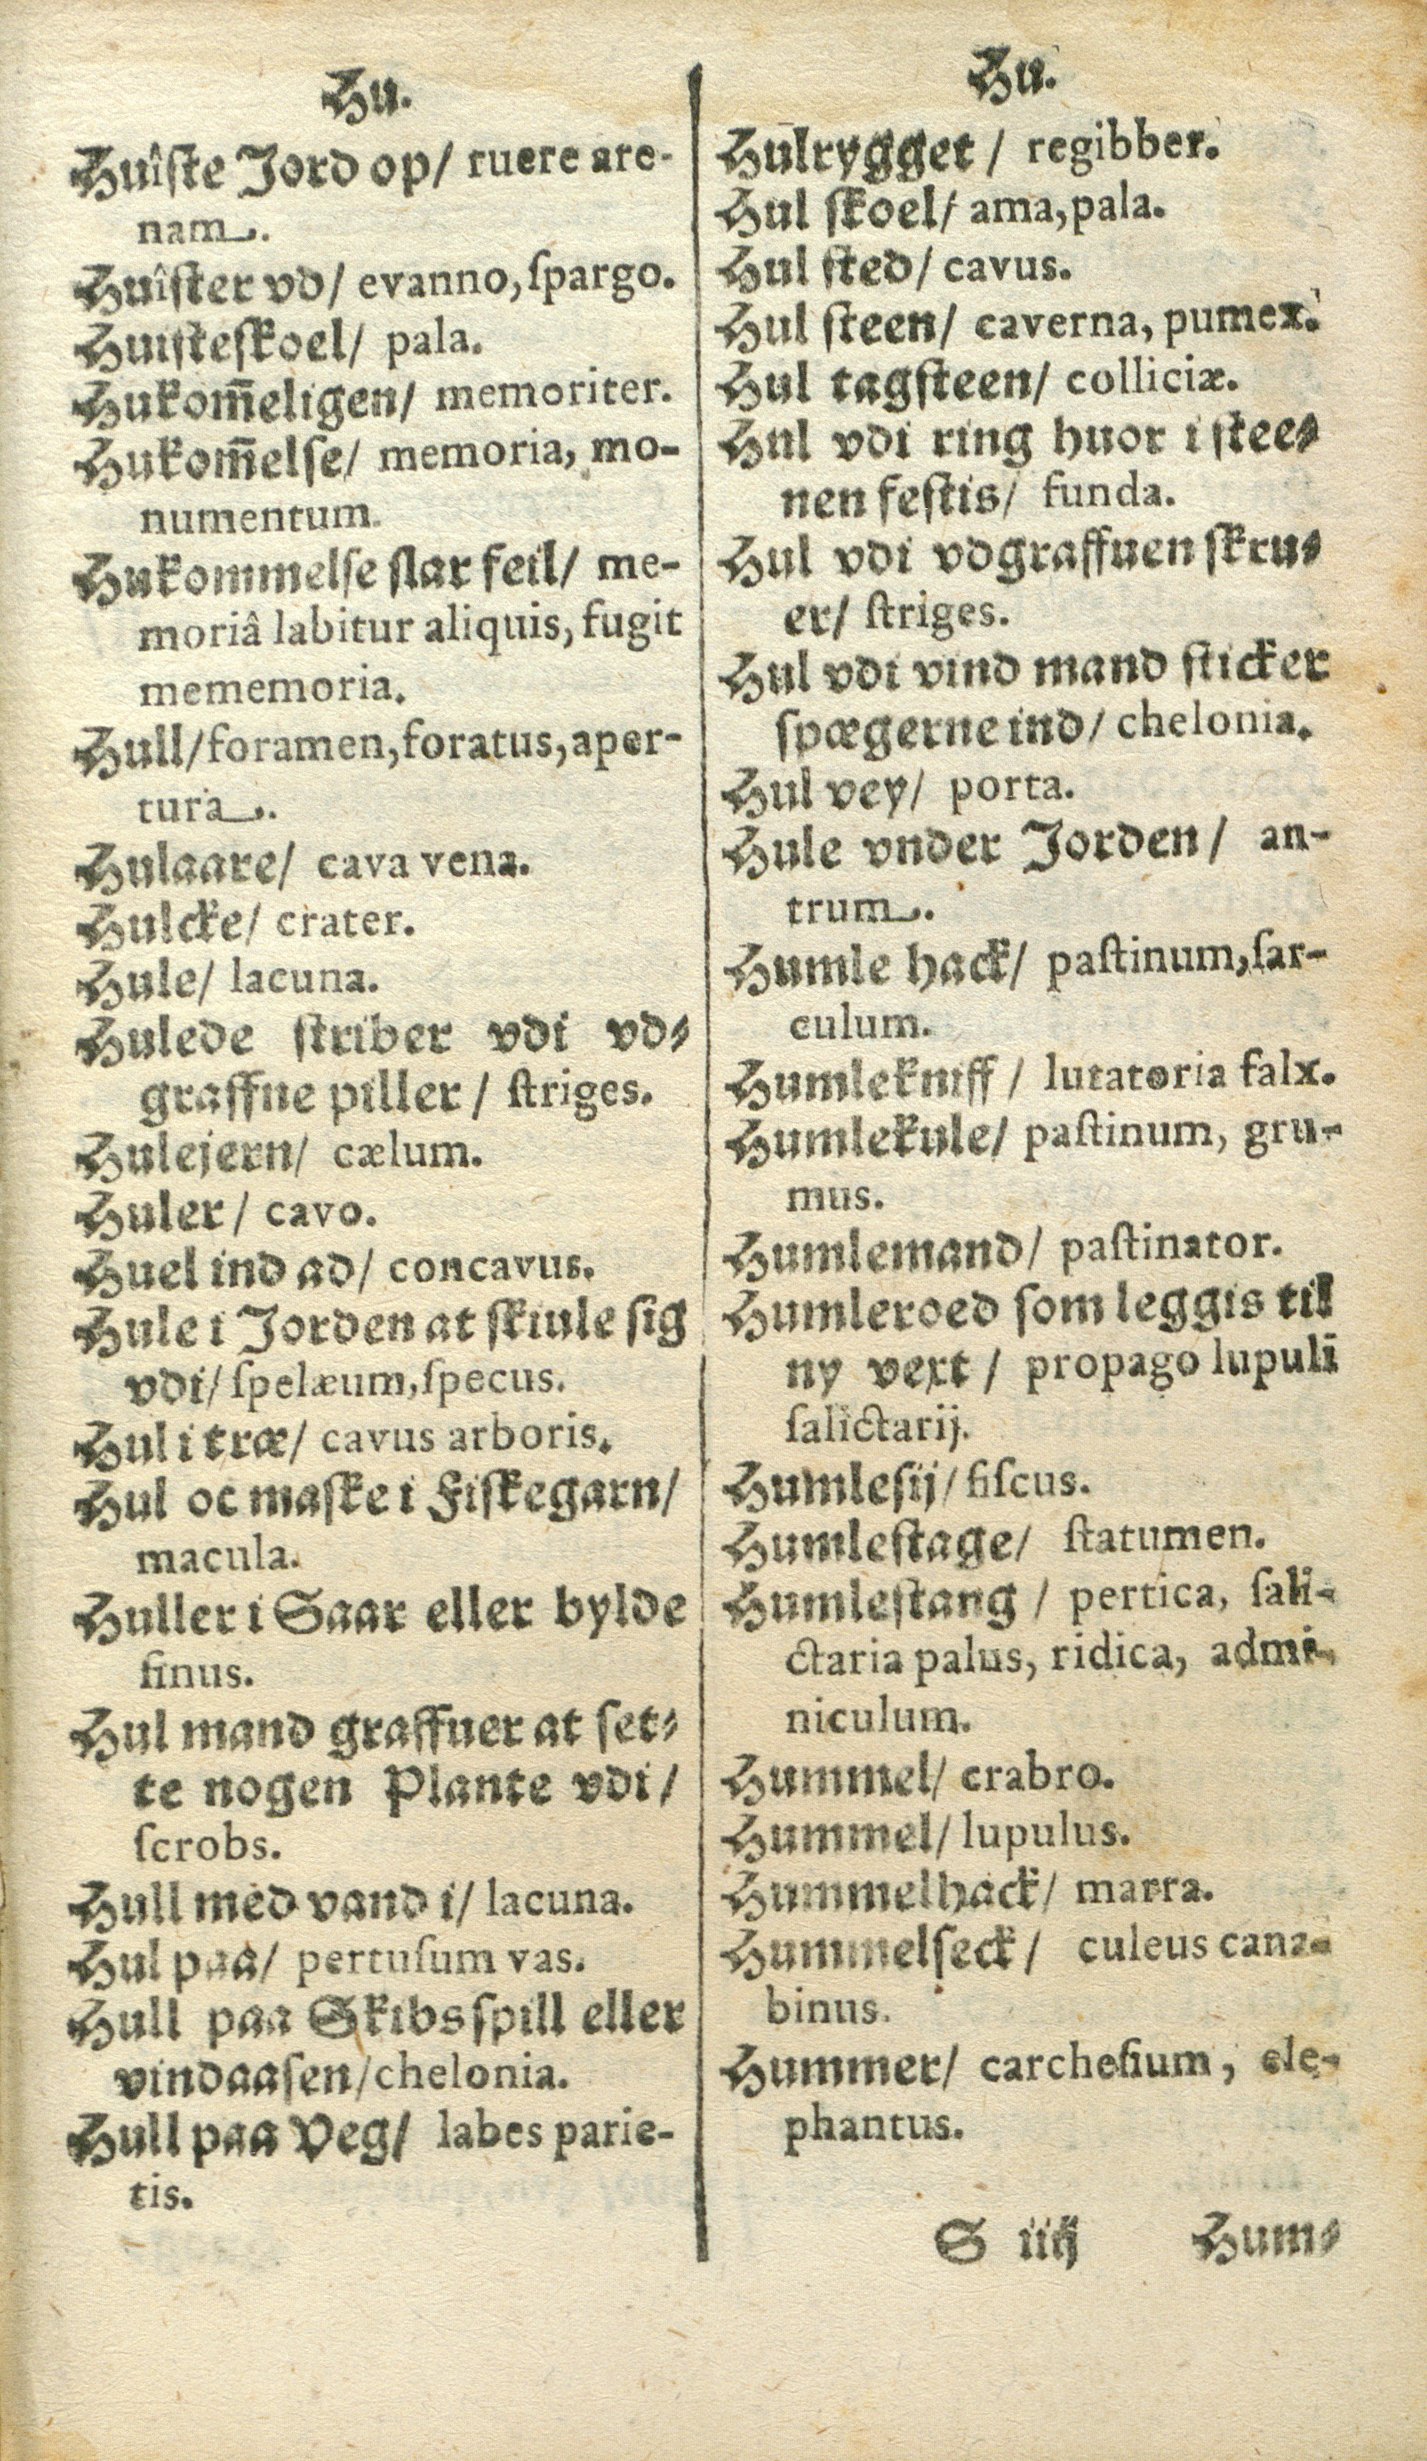 Hu.
Huîſte Jord op/ ruere are-
nam.
Huîſter vd/ evanno, ſpargo.
Huiſteſkoel/ pala.
Hukom̃eligen/ memoriter.
Hukom̃elſe/ memoria, mo-
numentum.
Hukommelſe ſlar feil/ me-
moriâ labitur aliquis, fugit
mememoria.
Hull/ foramen, foratus, aper-
tura.
Hulaare/ cava vena.
Hulcke/ crater.
Hule/ lacuna.
Hulede ſtriber vdi vd⸗
graffne piller/ ſtriges.
Hulejern/ cælum.
Huler/ cavo.
Huel ind ad/ concavus.
Hule i Jorden at ſkiule ſig
vdi/ ſpelæum, ſpecus.
Hul i træ/ cavus arboris.
Hul oc maſke i Fiſkegarn/
macula.
Huller i Saar eller bylde
ſinus.
Hul mand graffuer at ſet⸗
te nogen Plante vdi/
ſcrobs.
Hull med vand i/ lacuna.
Hul paa/ pertuſum vas.
Hull paa Skibs ſpill eller
vindaaſen/ chelonia.
Hull paa Veg/ labes parie-
tis.
Hu.
Hulrygget/ regibber.
Hul ſkoel/ ama, pala.
Hul ſted/ cavus.
Hul ſteen/ caverna, pumex.
Hul tagſteen/ colliciæ.
Hul vdi ring huor i ſtee⸗
nen feſtis/ funda.
Hul vdi vdgraffuen ſkru⸗
er/ ſtriges.
Hul vdi vind mand ſticker
ſpægerne ind/ chelonia.
Hul vey/ porta.
Hule vnder Jorden/ an-
trum.
Humle hack/ paſtinum, ſar-
culum.
Humlekniff/ lutatoria falx.
Humlekule/ paſtinum, gru-
mus.
Humlemand/ paſtinator.
Humleroed ſom leggis til
ny vext/ propago lupuli
ſalictarij.
Humleſij/ fiſcus.
Humleſtage/ ſtatumen.
Humleſtang/ pertica, ſali-
ctaria palus, ridica, admi-
niculum.
Hummel/ crabro.
Hummel/ lupulus.
Hummelhack/ marra.
Hummelſeck/ culeus cana-
binus.
Hummer/ carcheſium, ele-
phantus.
S iiij Hum⸗